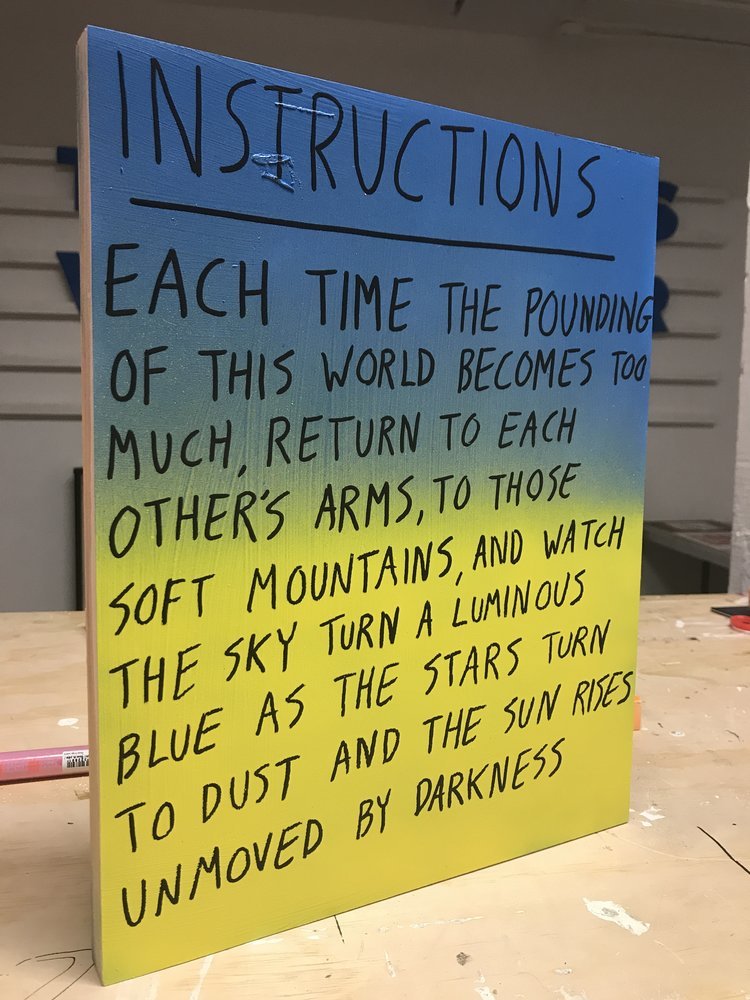 INSTRUCTIONS
EACH TIME THE POUNDING
OF THIS WORLD BECOMES TOO
MUCH, RETURN TO EACH
OTHER'S ARMS, TO THOSE
SOFT MOUNTAINS, AND WATCH
THE SKY TURN A LUMINOUS
BLUE AS THE STARS TURN
TO DUST AND THE SUN RISES
UNMOVED BY DARKNESS